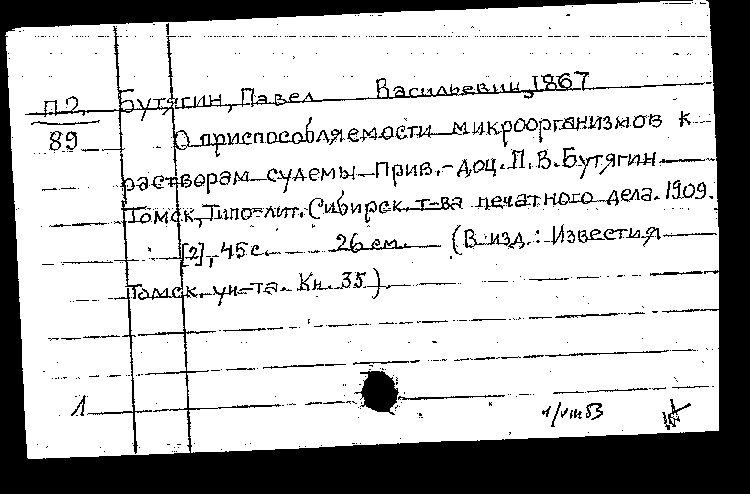 П2. Бутягин, Павел Васильевич, 1867
89 О приспособляемости микроорганизмов к
растворам сулемы. Прив.-доц. П. В. Бутягин.
Томск, Типо-лит. Сибирск. т-ва печатного дела. 1909.
[2], 45 с. 26 см. (В изд.: Известия
Томск. ун-та. Кн. 35).
1
1/VIII 53